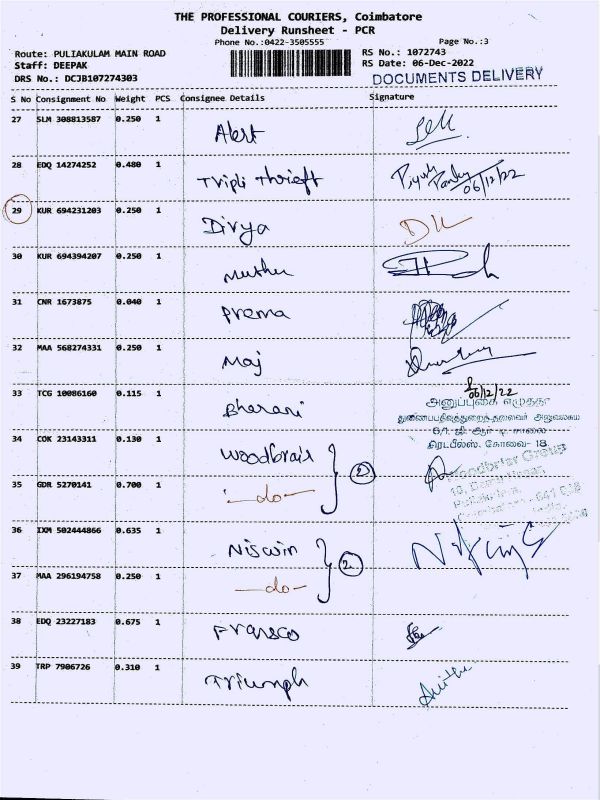 THE PROFESSIONAL COURIERS, Coimbatore
Delivery Runsheet - PCR
Phone No.:0422-3505555 Page No.:3
Route: PULIAKULAM MAIN ROAD RS No.: 1072743
Staff: DEEPAK RS Date: 06-Dec-2022
DRS No.: DCJB107274303 DOCUMENTS DELIVERY
S No Consignment No Weight PCS Consignee Details Signature
27 SLM 308813587 0.250 1 Albert
28 EDQ 14274252 0.480 1 Tripli Thrieft 06/12/22
29 KUR 694231203 0.250 1 Divya
30 KUR 694394207 0.250 1 Muthu
31 CNR 1673875 0.040 1 Prema
32 MAA 568274331 0.250 1 Maj
33 TCG 10086160 0.115 1 Bharani 06/12/22
அனுப்புகை எழுத்தர்
34 COK 23143311 0.130 1 Woodbrair 2
கோவை- 18.
Woodbrier Group
35 GDR 5270141 0.700 1 -do-
36 IXM 502444866 0.635 1 Niswin 2
37 MAA 296194758 0.250 1 -do-
38 EDQ 23227183 0.675 1 Fransco
39 TRP 7906726 0.310 1 Triumph